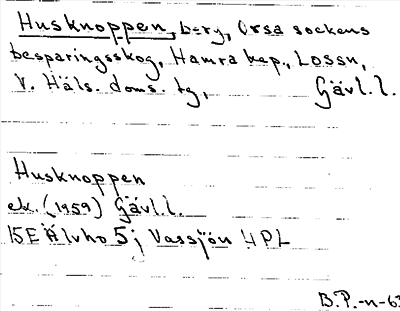 Husknoppen, berg, Orsa sockens
besparingsskog, Hamra kap., Lossn,
V. Häls. doms. tg, Gävl.l.
Husknoppen
ek. (1959) Gävl.l.
15E Älvho 5j Vassjön 4PL
B.P.-n-63